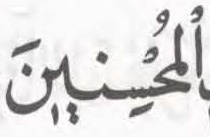 ٱلْمُحْسِنِينَ